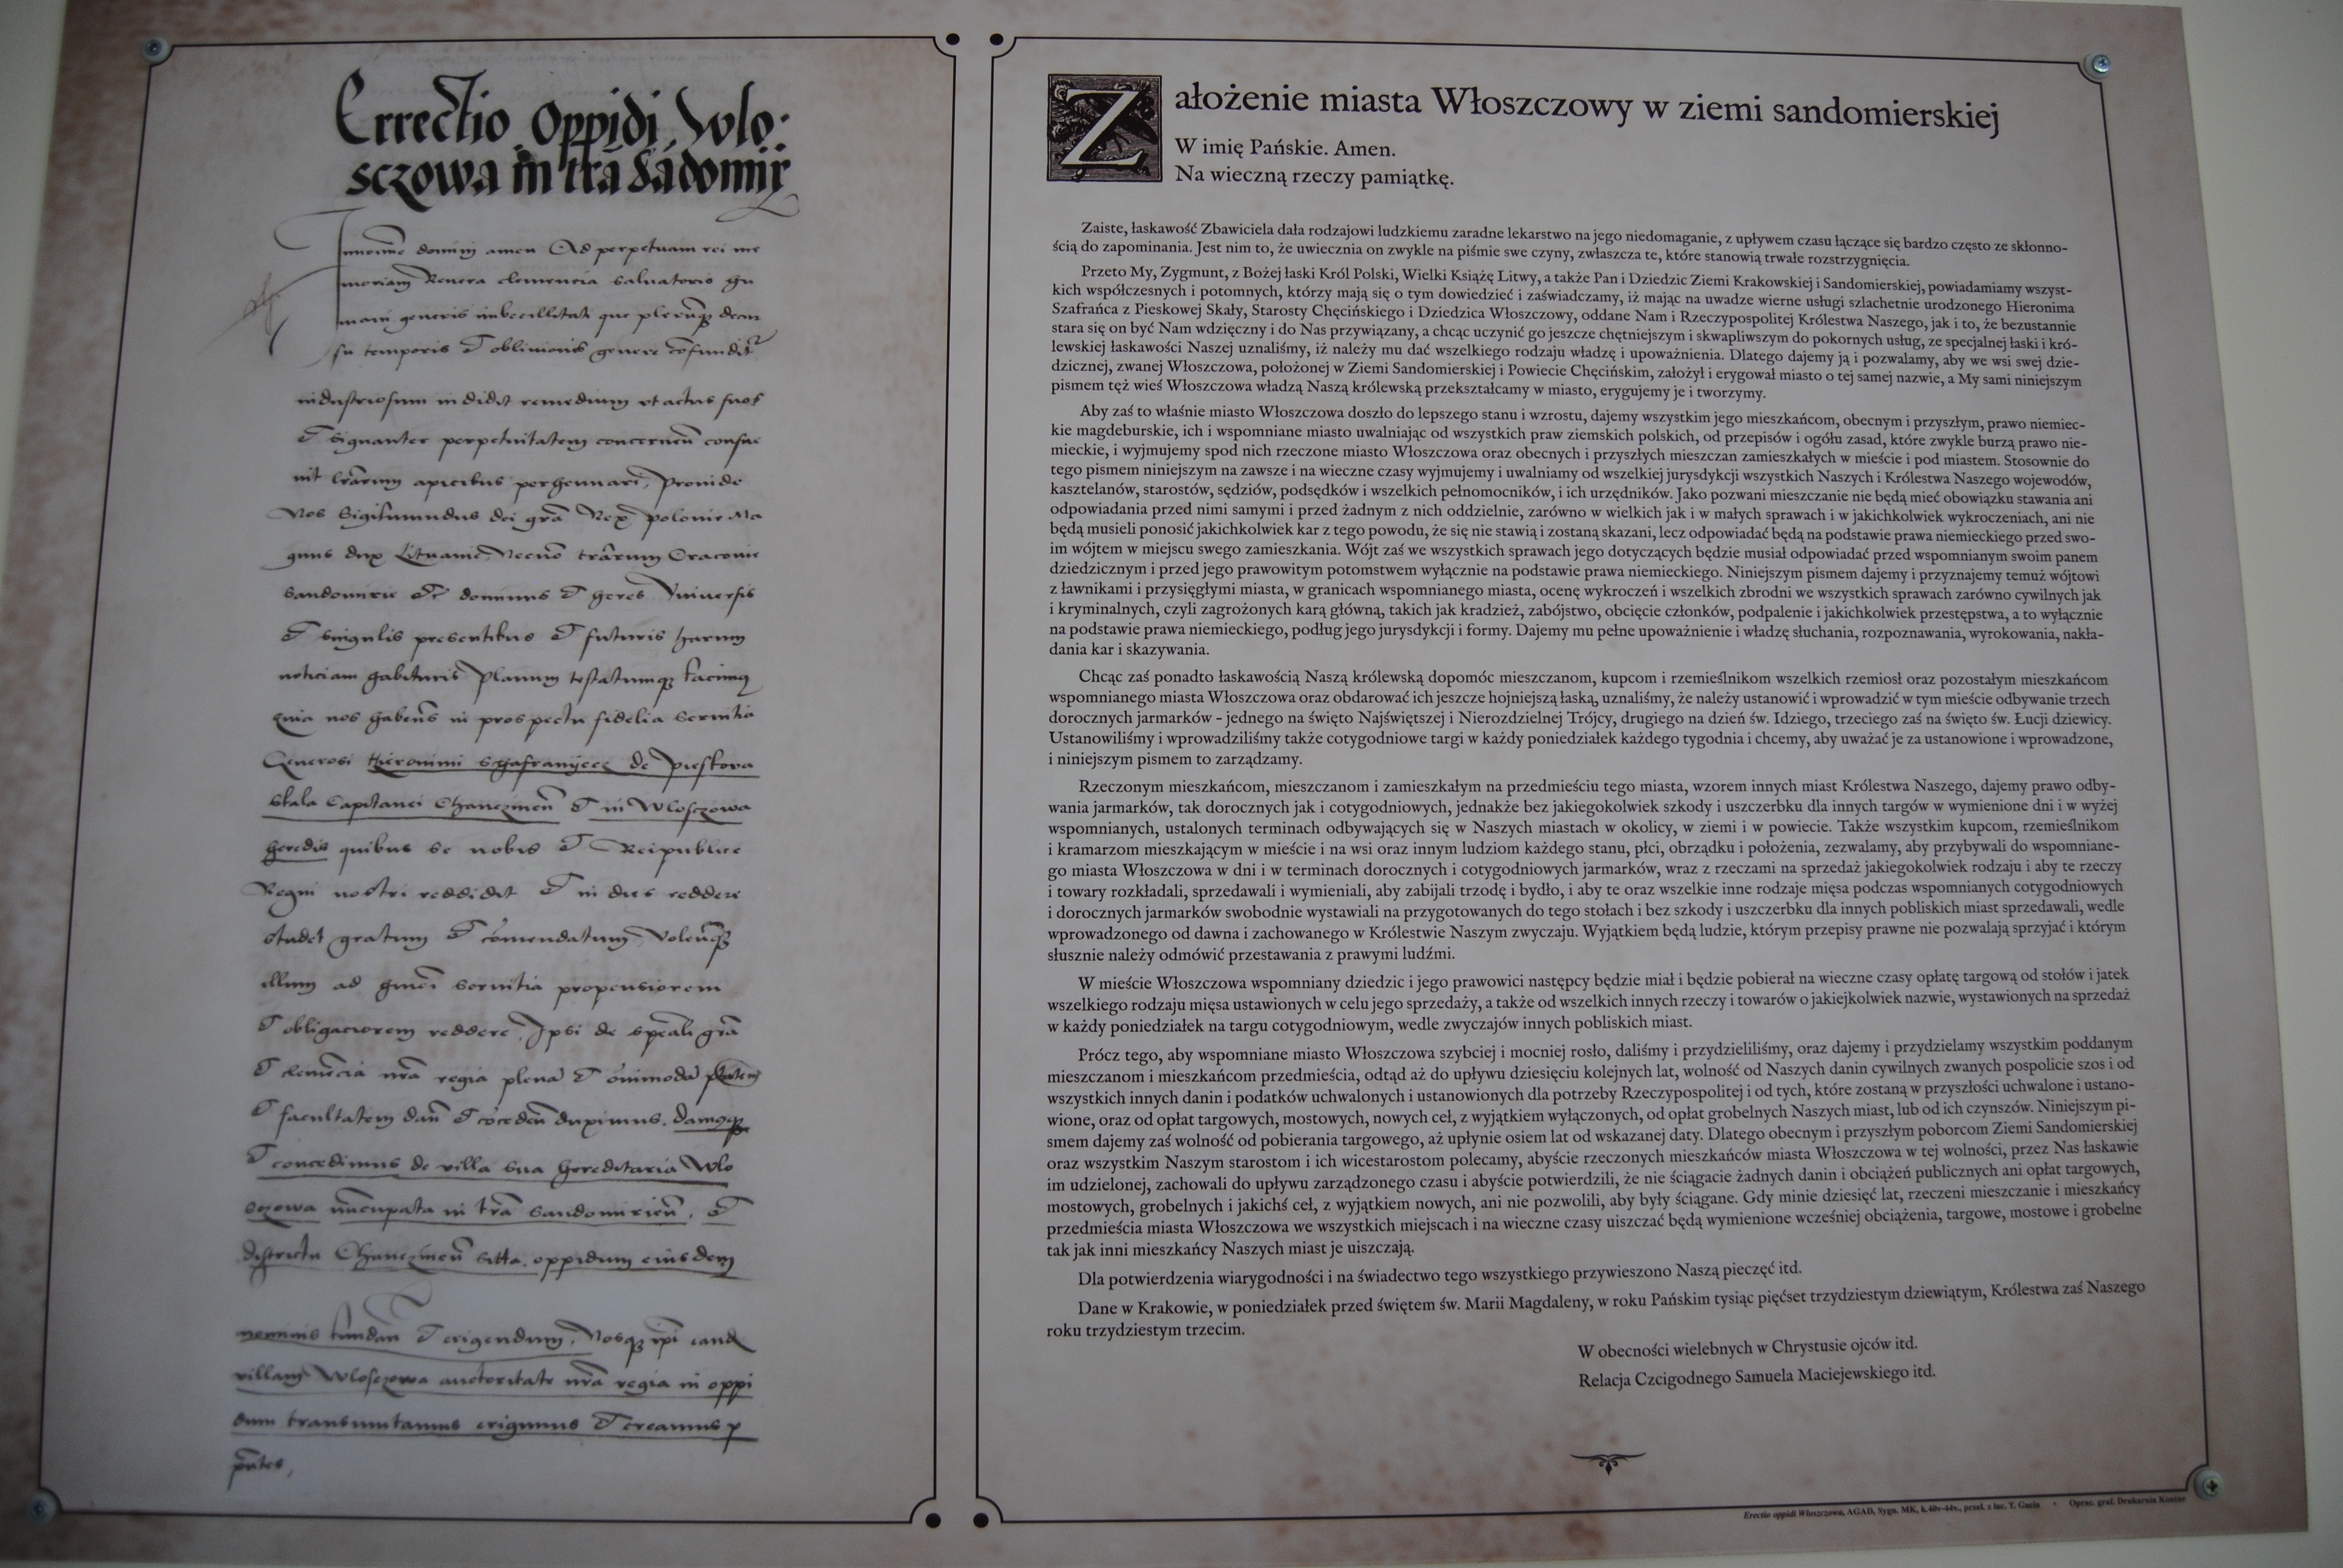 Errectio oppidi Wlo-
sczowa in tra Sadomir
domini amen Ad perpetuam rei me
moriam Revera clemencia salvatoris
su temporis oblivionis genere
industriosum indidit remedium ut actus suos
signanter perpetuitatem
apicibus Proinde
Nos Sigismundus dei gra Rex polonie Ma
gnus dux Lituanie Necno Cracovie
Sandomirie dominus heres Universis
singulis presentibus futuris harum
noticiam habituris
nos in prospectu fidelia servitia
Generosi Hieronimi de pieskova
skala Capitanei in Wlosczowa
heredis quibus se nobis Reipublice
Regni nostri reddidit in dies reddere
studet gratum
illum ad servitia propensiorem
obligaciorem reddere Ipsi de
regia plena
facultatem duximus.
concedimus de villa sua hereditaria Wlo
sczowa in
districtu oppidum eiusdem
nominis erigendum
villam Wlosczowa auctoritate regia in oppi
dum transmutamus erigimus creamus
Założenie miasta Włoszczowy w ziemi sandomierskiej
W imię Pańskie. Amen.
Na wieczną rzeczy pamiątkę.
Zaiste, łaskawość Zbawiciela dała rodzajowi ludzkiemu zaradne lekarstwo na jego niedomaganie, z upływem czasu łączące się bardzo często ze skłonno-
ścią do zapominania. Jest nim to, że uwiecznia on zwykle na piśmie swe czyny, zwłaszcza te, które stanowią trwałe rozstrzygnięcia.
Przeto My, Zygmunt, z Bożej łaski Król Polski, Wielki Książę Litwy, a także Pan i Dziedzic Ziemi Krakowskiej i Sandomierskiej, powiadamiamy wszyst-
kich współczesnych i potomnych, którzy mają się o tym dowiedzieć i zaświadczamy, iż mając na uwadze wierne usługi szlachetnie urodzonego Hieronima
Szafrańca z Pieskowej Skały, Starosty Chęcińskiego i Dziedzica Włoszczowy, oddane Nam i Rzeczypospolitej Królestwa Naszego, jak i to, że bezustannie
stara się on być Nam wdzięczny i do Nas przywiązany, a chcąc uczynić go jeszcze chętniejszym i skwapliwszym do pokornych usług, ze specjalnej łaski i kró-
lewskiej łaskawości Naszej uznaliśmy, iż należy mu dać wszelkiego rodzaju władzę i upoważnienia. Dlatego dajemy ją i pozwalamy, aby we wsi swej dzie-
dzicznej, zwanej Włoszczowa, położonej w Ziemi Sandomierskiej i Powiecie Chęcińskim, założył i erygował miasto o tej samej nazwie, a My sami niniejszym
pismem tęż wieś Włoszczowa władzą Naszą królewską przekształcamy w miasto, erygujemy je i tworzymy.
Aby zaś to właśnie miasto Włoszczowa doszło do lepszego stanu i wzrostu, dajemy wszystkim jego mieszkańcom, obecnym i przyszłym, prawo niemiec-
kie magdeburskie, ich i wspomniane miasto uwalniając od wszystkich praw ziemskich polskich, od przepisów i ogółu zasad, które zwykle burzą prawo nie-
mieckie, i wyjmujemy spod nich rzeczone miasto Włoszczowa oraz obecnych i przyszłych mieszczan zamieszkałych w mieście i pod miastem. Stosownie do
tego pismem niniejszym na zawsze i na wieczne czasy wyjmujemy i uwalniamy od wszelkiej jurysdykcji wszystkich Naszych i Królestwa Naszego wojewodów,
kasztelanów, starostów, sędziów, podsędków i wszelkich pełnomocników, i ich urzędników. Jako pozwani mieszczanie nie będą mieć obowiązku stawania ani
odpowiadania przed nimi samymi i przed żadnym z nich oddzielnie, zarówno w wielkich jak i w małych sprawach i w jakichkolwiek wykroczeniach, ani nie
będą musieli ponosić jakichkolwiek kar z tego powodu, że się nie stawią i zostaną skazani, lecz odpowiadać będą na podstawie prawa niemieckiego przed swo-
im wójtem w miejscu swego zamieszkania. Wójt zaś we wszystkich sprawach jego dotyczących będzie musiał odpowiadać przed wspomnianym swoim panem
dziedzicznym i przed jego prawowitym potomstwem wyłącznie na podstawie prawa niemieckiego. Niniejszym pismem dajemy i przyznajemy temuż wójtowi
z ławnikami i przysięgłymi miasta, w granicach wspomnianego miasta, ocenę wykroczeń i wszelkich zbrodni we wszystkich sprawach zarówno cywilnych jak
i kryminalnych, czyli zagrożonych karą główną, takich jak kradzież, zabójstwo, obcięcie członków, podpalenie i jakichkolwiek przestępstwa, a to wyłącznie
na podstawie prawa niemieckiego, podług jego jurysdykcji i formy. Dajemy mu pełne upoważnienie i władzę słuchania, rozpoznawania, wyrokowania, nakła-
dania kar i skazywania.
Chcąc zaś ponadto łaskawością Naszą królewską dopomóc mieszczanom, kupcom i rzemieślnikom wszelkich rzemiosł oraz pozostałym mieszkańcom
wspomnianego miasta Włoszczowa oraz obdarować ich jeszcze hojniejszą łaską, uznaliśmy, że należy ustanowić i wprowadzić w tym mieście odbywanie trzech
dorocznych jarmarków - jednego na święto Najświętszej i Nierozdzielnej Trójcy, drugiego na dzień św. Idziego, trzeciego zaś na święto św. Łucji dziewicy.
Ustanowiliśmy i wprowadziliśmy także cotygodniowe targi w każdy poniedziałek każdego tygodnia i chcemy, aby uważać je za ustanowione i wprowadzone,
i niniejszym pismem to zarządzamy.
Rzeczonym mieszkańcom, mieszczanom i zamieszkałym na przedmieściu tego miasta, wzorem innych miast Królestwa Naszego, dajemy prawo odby-
wania jarmarków, tak dorocznych jak i cotygodniowych, jednakże bez jakiegokolwiek szkody i uszczerbku dla innych targów w wymienione dni i w wyżej
wspomnianych, ustalonych terminach odbywających się w Naszych miastach w okolicy, w ziemi i w powiecie. Także wszystkim kupcom, rzemieślnikom
i kramarzom mieszkającym w mieście i na wsi oraz innym ludziom każdego stanu, płci, obrządku i położenia, zezwalamy, aby przybywali do wspomniane-
go miasta Włoszczowa w dni i w terminach dorocznych i cotygodniowych jarmarków, wraz z rzeczami na sprzedaż jakiegokolwiek rodzaju i aby te rzeczy
i towary rozkładali, sprzedawali i wymieniali, aby zabijali trzodę i bydło, i aby te oraz wszelkie inne rodzaje mięsa podczas wspomnianych cotygodniowych
i dorocznych jarmarków swobodnie wystawiali na przygotowanych do tego stołach i bez szkody i uszczerbku dla innych pobliskich miast sprzedawali, wedle
wprowadzonego od dawna i zachowanego w Królestwie Naszym zwyczaju. Wyjątkiem będą ludzie, którym przepisy prawne nie pozwalają sprzyjać i którym
słusznie należy odmówić przestawania z prawymi ludźmi.
W mieście Włoszczowa wspomniany dziedzic i jego prawowici następcy będzie miał i będzie pobierał na wieczne czasy opłatę targową od stołów i jatek
wszelkiego rodzaju mięsa ustawionych w celu jego sprzedaży, a także od wszelkich innych rzeczy i towarów o jakiejkolwiek nazwie, wystawionych na sprzedaż
w każdy poniedziałek na targu cotygodniowym, wedle zwyczajów innych pobliskich miast.
Prócz tego, aby wspomniane miasto Włoszczowa szybciej i mocniej rosło, daliśmy i przydzieliliśmy, oraz dajemy i przydzielamy wszystkim poddanym
mieszczanom i mieszkańcom przedmieścia, odtąd aż do upływu dziesięciu kolejnych lat, wolność od Naszych danin cywilnych zwanych pospolicie szos i od
wszystkich innych danin i podatków uchwalonych i ustanowionych dla potrzeby Rzeczypospolitej i od tych, które zostaną w przyszłości uchwalone i ustano-
wione, oraz od opłat targowych, mostowych, nowych ceł, z wyjątkiem wyłączonych, od opłat grobelnych Naszych miast, lub od ich czynszów. Niniejszym pi-
smem dajemy zaś wolność od pobierania targowego, aż upłynie osiem lat od wskazanej daty. Dlatego obecnym i przyszłym poborcom Ziemi Sandomierskiej
oraz wszystkim Naszym starostom i ich wicestarostom polecamy, abyście rzeczonych mieszkańców miasta Włoszczowa w tej wolności, przez Nas łaskawie
im udzielonej, zachowali do upływu zarządzonego czasu i abyście potwierdzili, że nie ściągacie żadnych danin i obciążeń publicznych ani opłat targowych,
mostowych, grobelnych i jakichś ceł, z wyjątkiem nowych, ani nie pozwolili, aby były ściągane. Gdy minie dziesięć lat, rzeczeni mieszczanie i mieszkańcy
przedmieścia miasta Włoszczowa we wszystkich miejscach i na wieczne czasy uiszczać będą wymienione wcześniej obciążenia, targowe, mostowe i grobelne
tak jak inni mieszkańcy Naszych miast je uiszczają.
Dla potwierdzenia wiarygodności i na świadectwo tego wszystkiego przywieszono Naszą pieczęć itd.
Dane w Krakowie, w poniedziałek przed świętem św. Marii Magdaleny, w roku Pańskim tysiąc pięćset trzydziestym dziewiątym, Królestwa zaś Naszego
roku trzydziestym trzecim.
W obecności wielebnych w Chrystusie ojców itd.
Relacja Czcigodnego Samuela Maciejewskiego itd.
Erectio oppidi Włoszczowa, AGAD, Sygn. MK, k.40v-44v., przeł. z łac. T. Gacia • Oprac. graf. Drukarnia Kontur